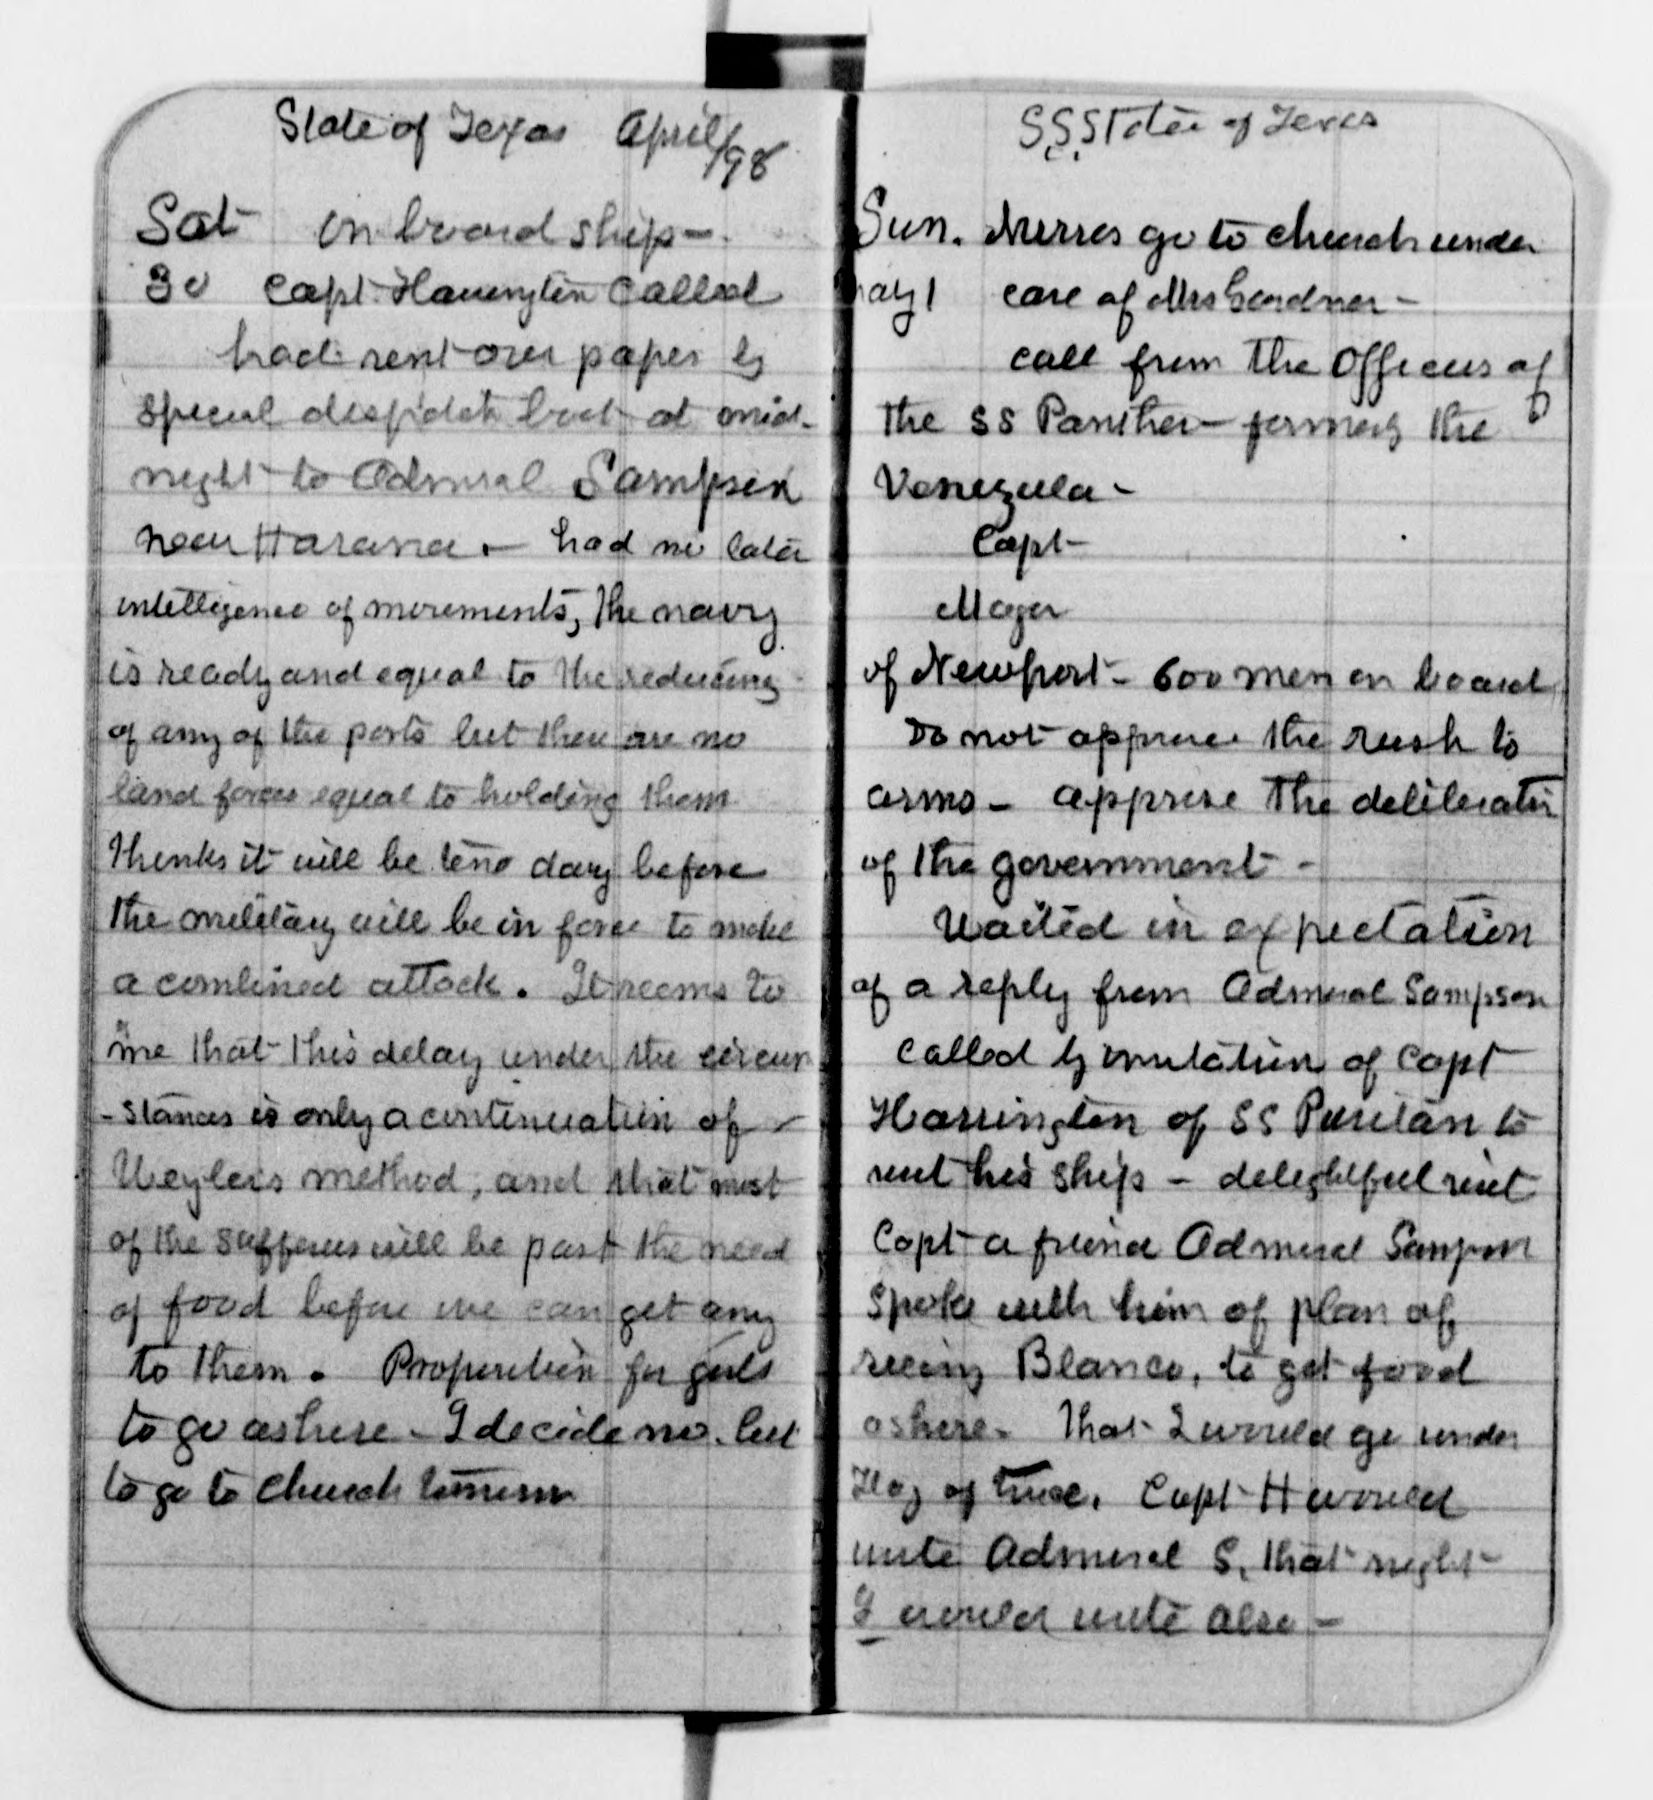 State of Texas April/98
Sat on board ship -
30 Capt. Harrington called
had sent our paper by
special despatch boat at mid-
night to Admiral Sampson
near Havana. - had no later
intelligence of movements, the navy
is ready and equal to the reducing
of any of the ports but there are no
land forces equal to holding them
thinks it will be tens days before
the military will be in force to make
a combined attack. It seems to
me that this delay under the circum
-stances is only a continuation of
Weylers method, and that most
of the sufferers will be past the need
of food before we can get any
to them. Proposition for girls
to go ashore - I decide no. but
to go to church tomorrow
S.S. State of Texas
Sun. Nurses go to church under
May 1 care of Mrs Gardner -
call from the Officers of
the SS Panther - formerly the
Venezula -
Capt -
Major
of Newport - 600 men on board
Do not approve the rush to
arms - approve the deliberation
of the government -
Waited in expectation
of a reply from Admiral Sampson
called by invitation of Capt
Harrington of SS Puritan to
visit his ship - delightful visit
Capt a friend Admiral Sampson
spoke with him of plan of
seeing Blanco, to get food
ashore. That I would go under
Flag of truce. Capt H would
write Admiral S. that night -
I would write also -